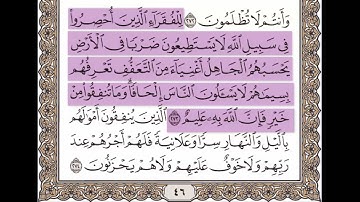 وَأَنتُمْ لَا تُظْلَمُونَ ﴿٢٧٢﴾ لِلْفُقَرَاءِ الَّذِينَ أُحْصِرُوا
فِي سَبِيلِ اللَّهِ لَا يَسْتَطِيعُونَ ضَرْبًا فِي الْأَرْضِ
يَحْسَبُهُمُ الْجَاهِلُ أَغْنِيَاءَ مِنَ التَّعَفُّفِ تَعْرِفُهُم
بِسِيمَاهُمْ لَا يَسْأَلُونَ النَّاسَ إِلْحَافًا وَمَا تُنفِقُوا مِنْ
خَيْرٍ فَإِنَّ اللَّهَ بِهِ عَلِيمٌ ﴿٢٧٣﴾ الَّذِينَ يُنفِقُونَ أَمْوَالَهُم
بِاللَّيْلِ وَالنَّهَارِ سِرًّا وَعَلَانِيَةً فَلَهُمْ أَجْرُهُمْ عِندَ
رَبِّهِمْ وَلَا خَوْفٌ عَلَيْهِمْ وَلَا هُمْ يَحْزَنُونَ ﴿٢٧٤﴾
٤٦